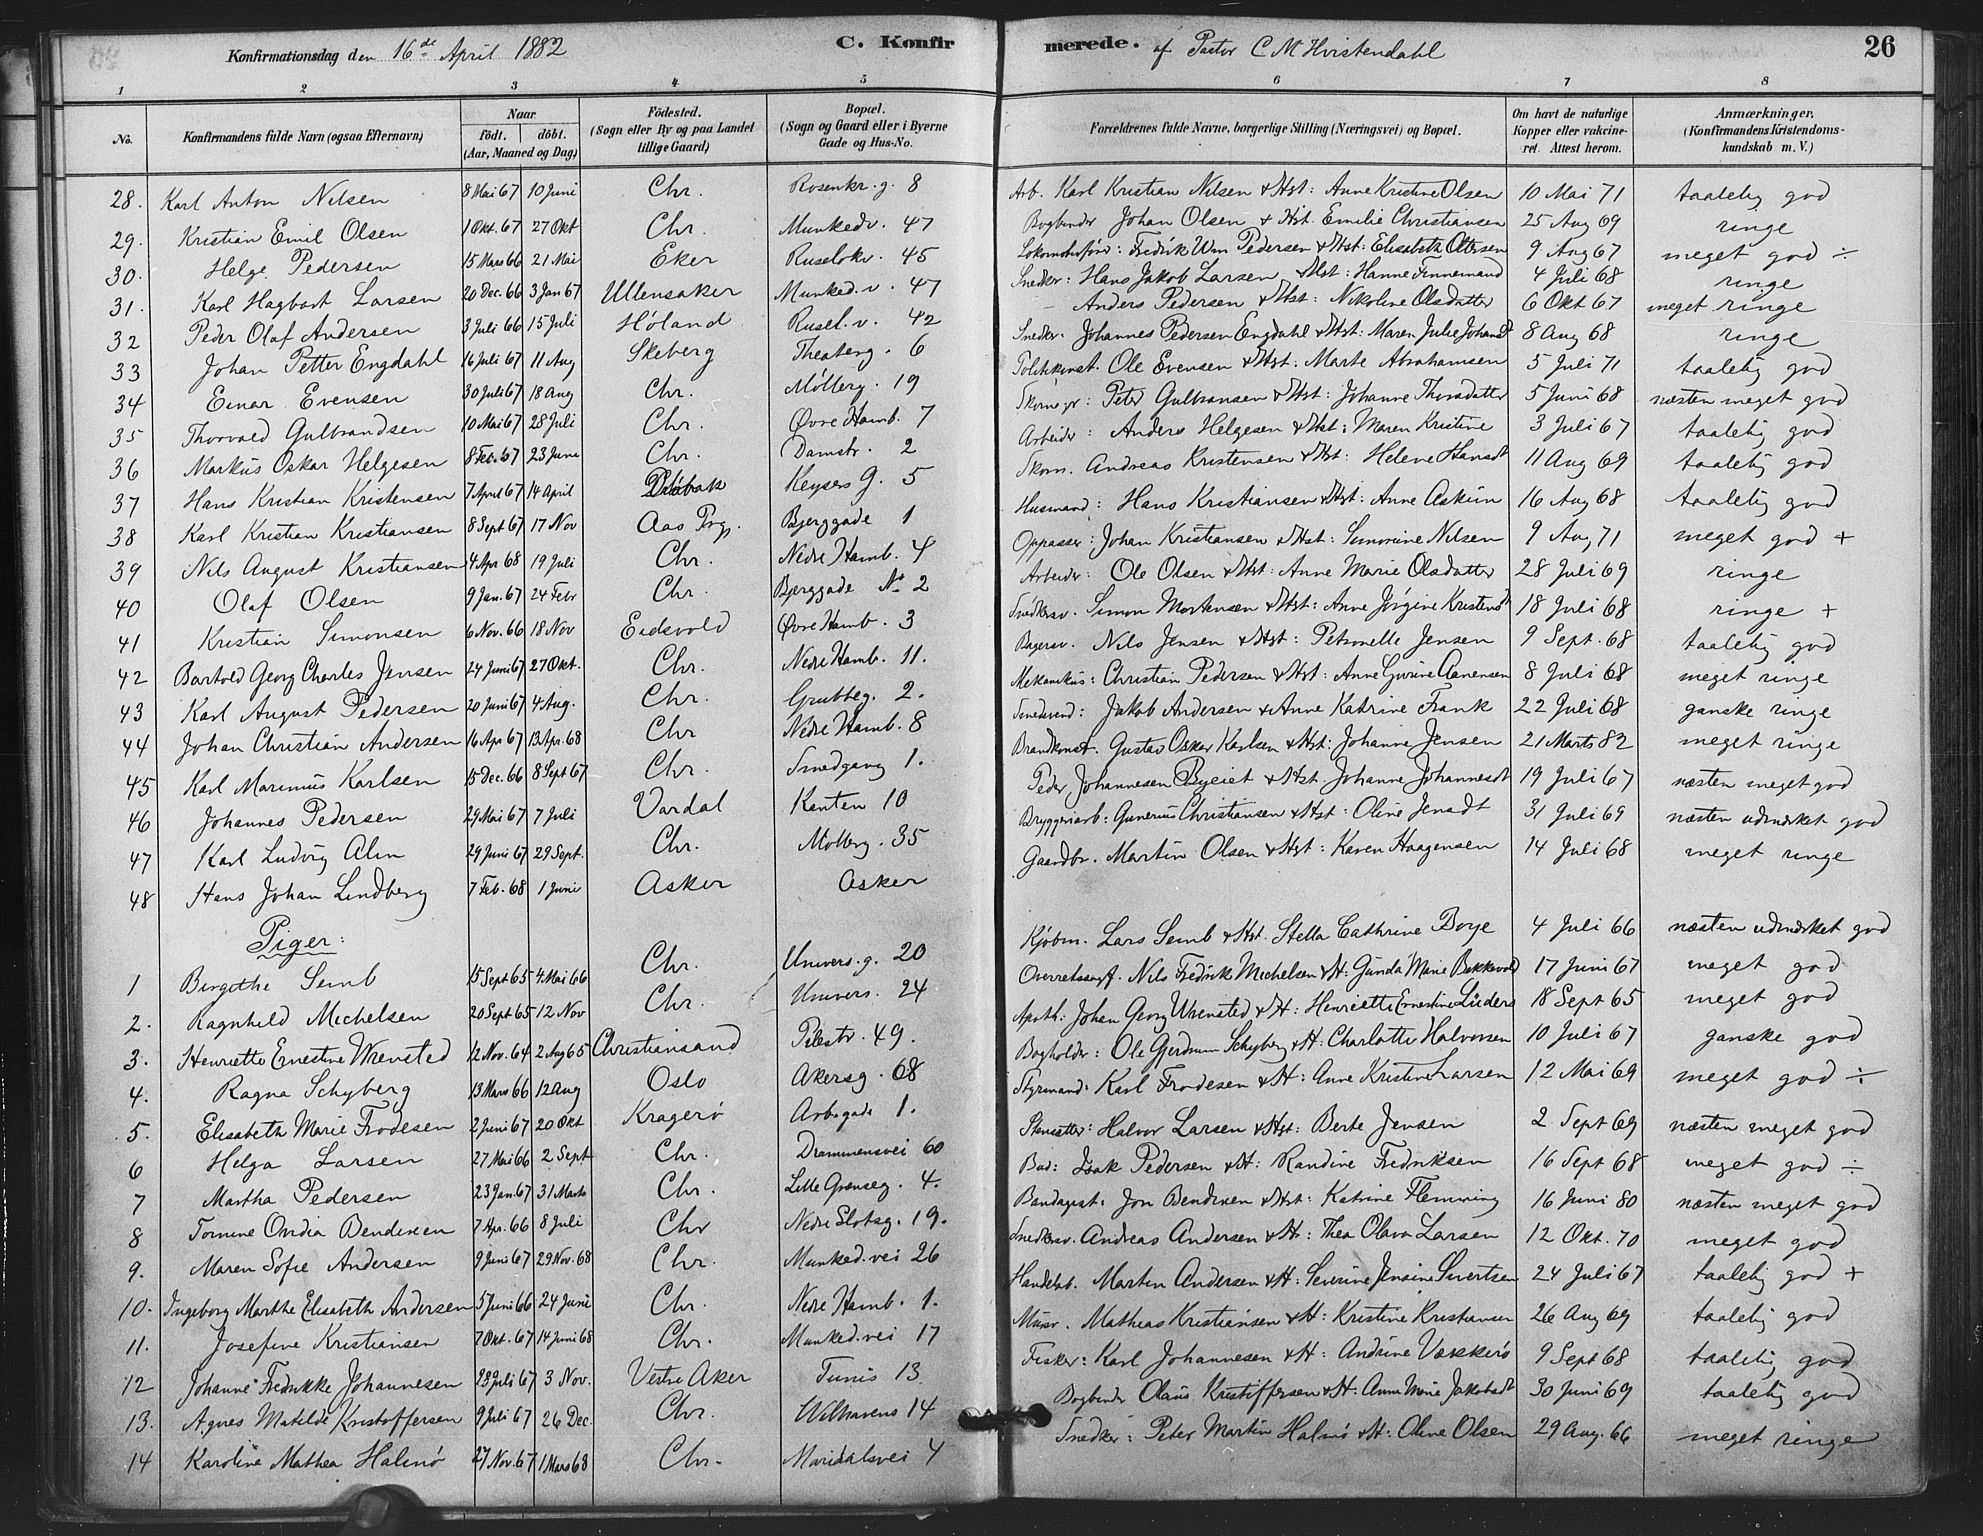 Konfirmationsdag den 16de April 1882 C. Konfirmerede. af Pastor C M Hvistendahl 26
1 2 3 4 5 6 7 8
No. Konfirmandens fulde Navn (ogsaa Efternavn) Naar født. døbt. (Aar, Maaned og Dag) Födested. (Sogn eller By og paa Landet tillige Gaard) Bopæl. (Sogn og Gaard eller i Byerne Gade og Hus-No. Forældrenes fulde Navne, borgerlige Stilling (Næringsvei) og Bopæl. Om havt de naturlige Kopper eller vakcineret. Attest herom. Anmærkninger. (Konfirmandens Kristendomskundskab m. V.)
28. Karl Anton Nilsen 8 Mai 67 10 Juni Chr. Rosenkr. g. 8 Arb. Karl Kristian Nilsen & Hst: Anne Kristine Olsen 10 Mai 71 taalelig god
29. Kristian Emil Olsen 1 Okt. 67 27 Okt Chr. Munkedv. 47 Bogbinder Johan Olsen & Hst. Emilie Christiansen 25 Aug 69 ringe
30. Helge Pedersen 15 Mars 66 21 Mai Eker Ruselokv. 45 Lokomotivfører: Fredrik Wm Pedersen & Hst: Elisabeth Ottersen 9 Aug 67 meget god ÷
31. Karl Hagbart Larsen 20 Dec. 66 3 Jan 67 Ullensaker Munked. v. 47 Snedker: Hans Jakob Larsen & Hst: Hanne Finnemand 4 Juli 68 ringe
32 Peder Olaf Andersen 3 Juli 66 15 Juli Høland Rusel. v. 42 Anders Pedersen & Hst: Nikoline Olsdatter 6 Okt 67 meget ringe
33 Johan Petter Engdahl 16 Juli 67 11 Aug Skeberg Theaterg. 6 Snedker. Johannes Pedersen Engdahl & Hst. Maren Julie Johansdt 8 Aug 68 ringe
34 Einar Evensen 30 Juli 67 18 Aug Chr. Møllerg. 19 Politikonst. Ole Evensen & Hst: Marte Abrahamsen 5 Juli 71 taalelig god
35 Thorvald Gulbrandsen 10 Mai 67 28 Juli Chr. Øvre Hamb. 7 Peter Gulbransen & Hst: Johanne Thorsdatter 5 Juni 68 næsten meget god
36 Markus Oskar Helgesen 8 Feb. 67 23 June Chr. Damstr. 2 Arbeider: Anders Helgesen & Hst: Maren Kristine 3 Juli 67 taalelig god
37 Hans Kristian Kristensen 7 April 67 14 April Drøbak Keysers G. 5 Skom. Andreas Kristensen & Hst: Helene Hansdt 11 Aug 69 taalelig god
38 Karl Kristian Kristiansen 8 Sept 67 17 Nov Aas Prgj. Bjerggade 1 Husmand: Hans Kristiansen & Hst: Anne Askim 16 Aug 68 taalelig god
39 Nils August Kristiansen 4 Apr 68 19 Juli Chr. Nedre Hamb. 4 Oppasser: Johan Kristiansen & Hst: Simorine Nilsen 9 Aug 71 meget god +
40 Olaf Olsen 9 Jan. 67 24 Febr Chr. Bjerggade No 2 Arbeider: Ole Olsen & Hst: Anne Marie Olsdatter 28 Juli 69 ringe
41 Kristian Simonsen 6 Nov. 66 18 Nov Eidsvold Øvre Hamb. 3 Snedkersv. Simon Mortensen & Hst: Anne Jørgine Kristensdt 18 Juli 68 ringe +
42 Bartold Georg Charles Jensen 24 Juni 67 27 Okt. Chr. Nedre Hamb. 11. Bagersv. Nils Jensen & Hst: Petronelle Jensen 9 Sept. 68 taalelig god
43 Karl August Pedersen 20 Juni 67 4 Aug. Chr. Grubbeg. 2. Mekanikus: Christian Pedersen & Hst: Anne Gurine Aanensen 8 Juli 68 meget ringe
44 Johan Christian Andersen 16 Apr 67 13 Apr. 68 Chr Nedre Hamb. 8 Smedsvend: Jakob Andersen & Anne Katrine Frank 22 Juli 68 ganske ringe
45 Karl Marinius Karlsen 15 Dec. 66 8 Sept 67 Chr. Smedgang 1. Brandkonst. Gustav Oskar Karlsen & Hst: Johanne Jensen 21 Marts 82 meget ringe
46 Johannes Pedersen 29 Mai 67 7 Juli Vardal Kanten 10 Peder Johannesen Byeiet & Hst. Johanne Johannesdt 19 Juli 67 næsten meget god
47 Karl Ludvig Alm 29 Juni 67 29 Sept. Chr. Møllerg. 35 Bryggeriarb: Gunerius Christiansen & Hst: Oline Jensdt 31 Juli 69 næsten udmærket god
48 Hans Johan Lindberg 7 Feb. 68 1 Juni Asker Asker Gaardbr. Martin Olsen & Hst: Karen Haagensen 14 Juli 68 meget ringe
Piger:
1 Birgithe Semb 15 Sept 65 4 Mai 66 Chr. Univers. g. 20 Kjøbm. Lars Semb & Hst. Stella Cathrine Boye 4 Juli 66 næsten udmærket god
2. Ragnhild Michelsen 20 Sept 65 12 Nov Chr. Univers. 24 Overretssagf. Nils Fredrik Michelsen & H: Gunda Marie Bakkevold 17 Juni 67 meget god
3. Henriette Ernestine Wrensted 12 Nov. 64 2 Aug 65 Christiansand Pilestr. 49. Apoth: Johan Georg Wrensted & H: Henriette Ernestine Lüders 18 Sept 65 meget god
4. Ragna Schyberg 13 Mars 66 12 Aug Oslo Akersg. 68 Bogholder: Ole Gjerdrum Schyberg & H: Charlotte Halvorsen 10 Juli 67 ganske god
5. Elisabeth Marie Frodesen 2 Juni 67 20 Okt Kragerø Arb. gade 1. Styrmand: Karl Frodesen & H: Anne Kristine Larsen 12 Mai 69 meget god ÷
6 Helga Larsen 27 Mai 66 2 Sept Chr. Drammensvei 60 Stensætter: Halvor Larsen & Hst: Berte Jensen 2 Sept 69 næsten meget god
7 Martha Pedersen 23 Jan. 67 31 Marts Chr. Lille Grænseg. 4. Bud: Isak Pedersen & H: Randine Fredriksen 16 Sept 68 meget god ÷
8 Tomine Ovidia Bendixen 7 Apr. 66 8 Juli Chr Nedre Slotsg. 19. Bandagist: Jon Bendixen & Hst: Katrine Flemming 16 Juni 80 næsten meget god
9. Maren Sofie Andersen 9 Juni 67 29 Nov. 68 Chr. Munked. vei 26 Snedkersv. Andreas Andersen & H: Thea Olava Larsen 12 Okt. 70 meget god
10. Ingeborg Marthe Elisabeth Andersen 5 Juni 66 24 Juni Chr. Nedre Hamb. 1. Handelsb. Martin Andersen & H: Severine Jensine Sivertsen 24 Juli 67 taalelig god +
11. Josefine Kristiansen 7 Okt. 67 14 Juni 68 Chr. Munked. vei 17 Mursv. Mathias Kristiansen & H: Kristine Kristiansen 26 Aug 69 taalelig god
12 Johanne Fredrikke Johannesen 23 Juli 67 3 Nov. Vestre Aker Tunis 13. Fisker: Karl Johannesen & H: Andrine Vækkerø 9 Sept 68 taalelig god
13. Agnes Matilde Kristoffersen 9 Juli 67 26 Dec. Chr. Wilhavens 14 Bogbinder Olaus Kristoffersen & H: Anne Marie Jakobsdt 30 Juni 69 taalelig god
14 Karoline Mathea Halmø 27 Nov. 67 1 Mars 68 Chr. Maridalsvei 4 Snedker: Peter Martin Halmø & H: Oline Olsen 29 Aug. 66 meget ringe